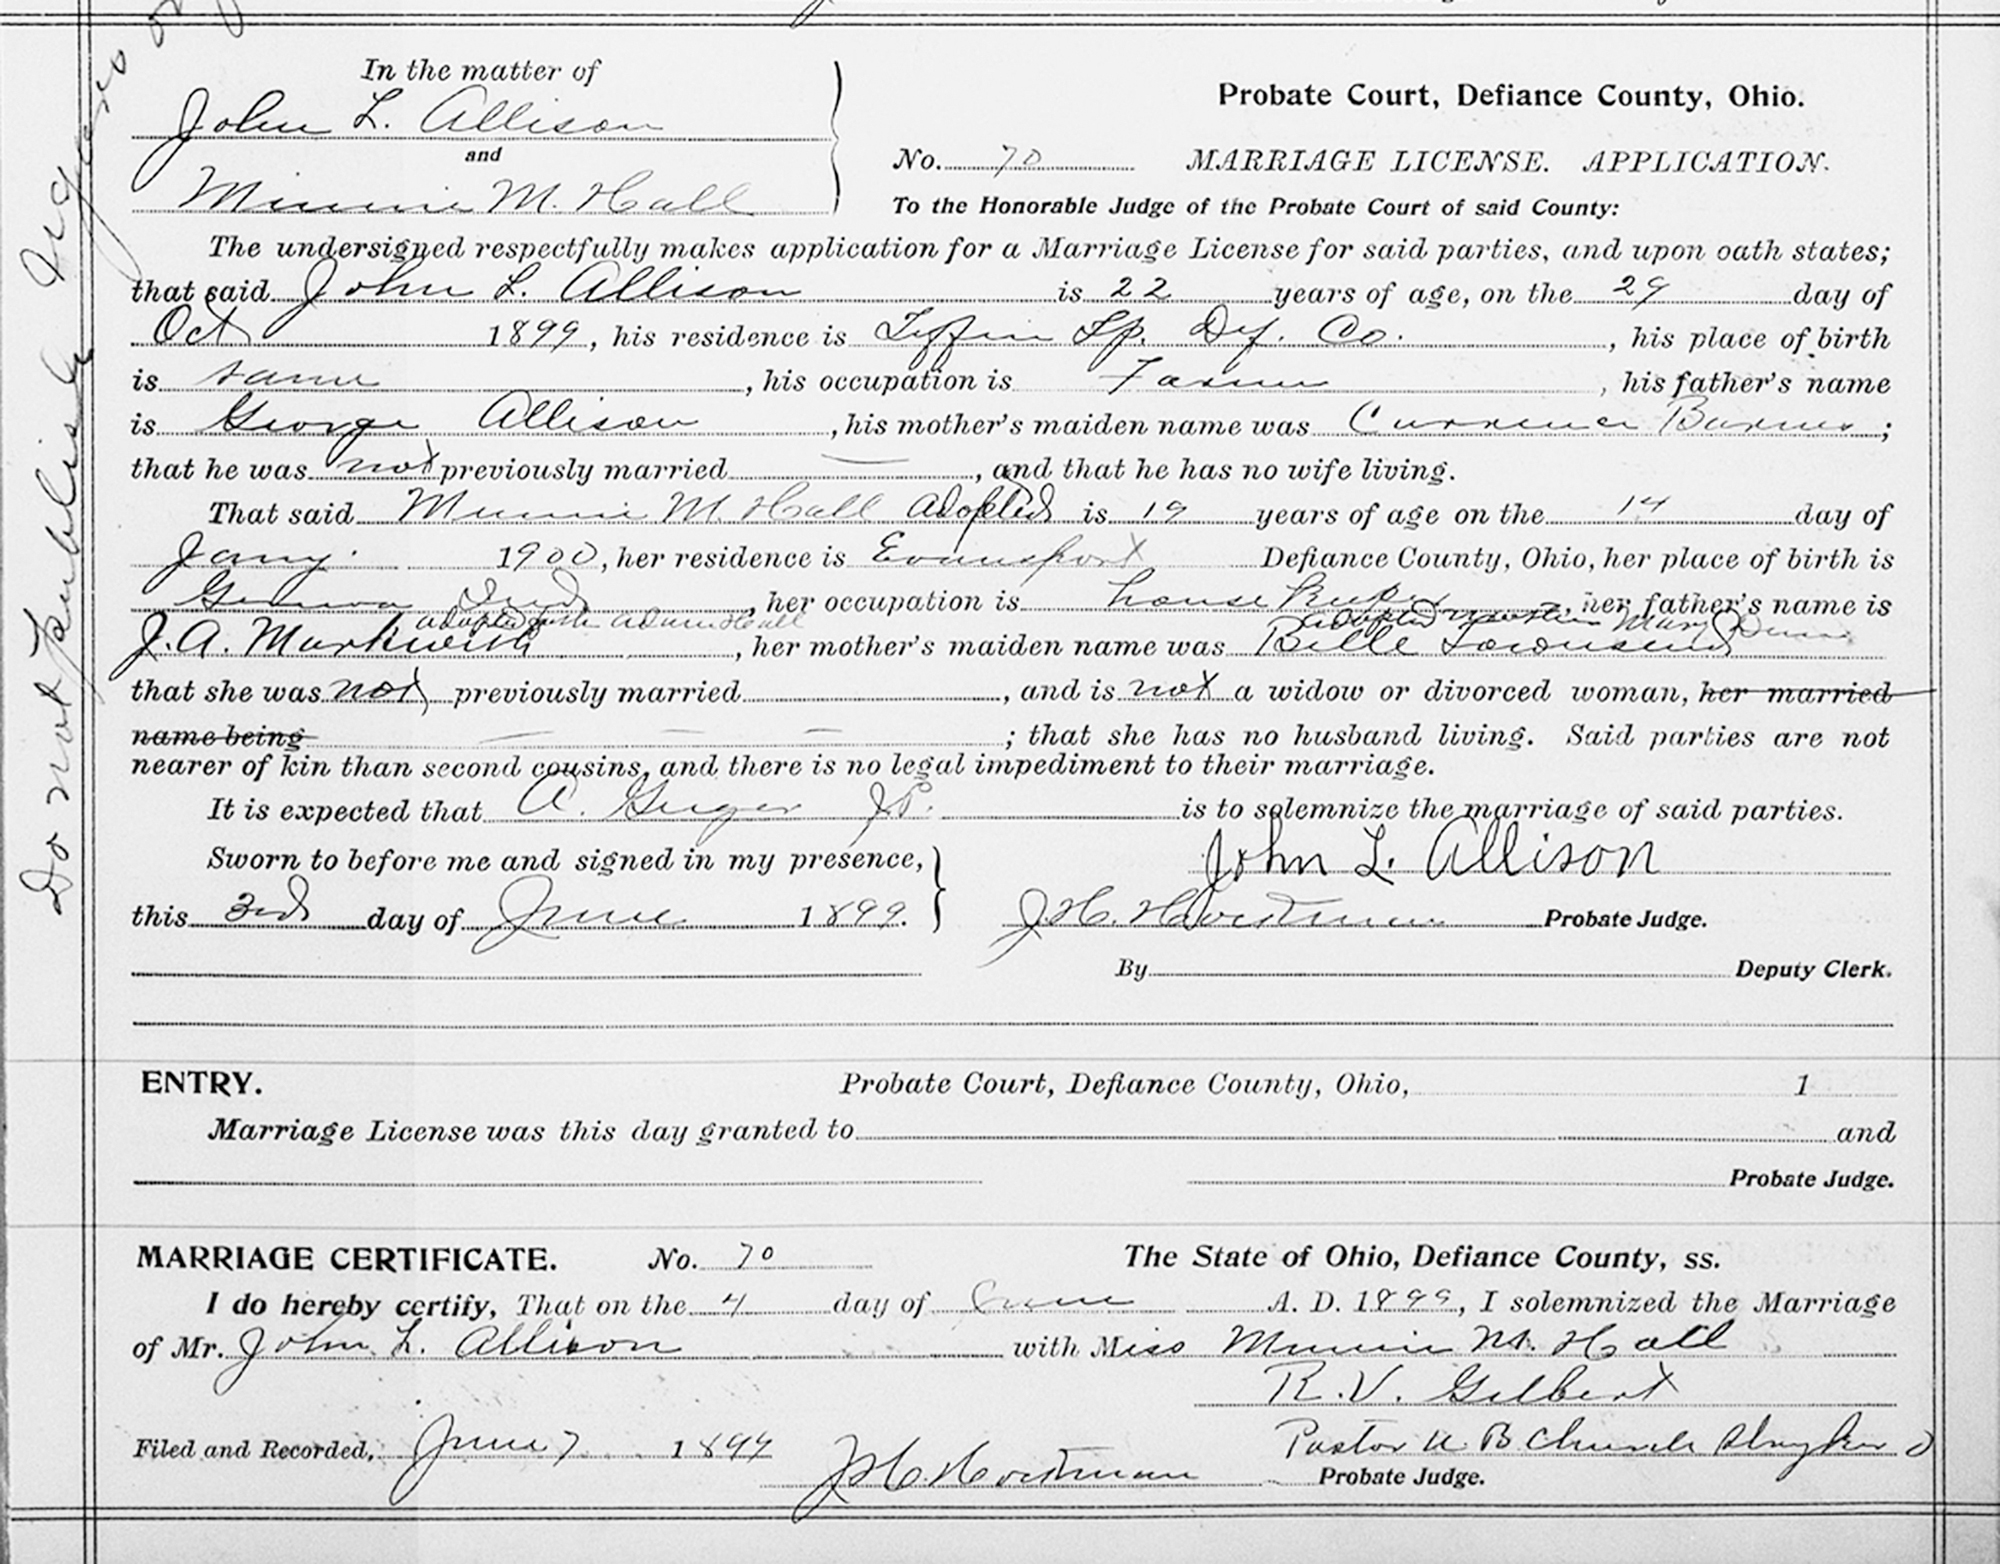 In the matter of
John L. Allison
and
Minnie M. Hall
Probate Court, Defiance County, Ohio.
No. 70 MARRIAGE LICENSE. APPLICATION.
To the Honorable Judge of the Probate Court of said County:
The undersigned respectfully makes application for a Marriage License for said parties, and upon oath states;
that said John L. Allison is 22 years of age, on the 29 day of
Oct 1899, his residence is Tiffin Tp. Def. Co. , his place of birth
is same , his occupation is Farmer , his father's name
is George Allison , his mother's maiden name was Currence Barnes ;
that he was not previously married — , and that he has no wife living.
That said Minnie M. Hall adopted is 19 years of age on the 14 day of
Jany. 1900, her residence is Evansport Defiance County, Ohio, her place of birth is
Geneva Ind , her occupation is house keeper , her father's name is
adopted father Adam Hall adopted mother Mary
J. A. Markwith , her mother's maiden name was Belle Townsend
that she was not previously married , and is not a widow or divorced woman, her married
name being — — — ; that she has no husband living. Said parties are not
nearer of kin than second cousins, and there is no legal impediment to their marriage.
It is expected that A. J.P. is to solemnize the marriage of said parties.
Sworn to before me and signed in my presence,
John L. Allison
this 3rd day of June 1899.
J.H. Hortsman Probate Judge.
By Deputy Clerk.
ENTRY. Probate Court, Defiance County, Ohio, 1
Marriage License was this day granted to and
Probate Judge.
MARRIAGE CERTIFICATE. No. 70 The State of Ohio, Defiance County, ss.
I do hereby certify, That on the 4 day of June A. D. 1899, I solemnized the Marriage
of Mr. John L. Allison with Miss Minnie M. Hall
R. V. Gilbert
Pastor U B Church Stryker O
Filed and Recorded, June 7 1899 J H Hortsman Probate Judge.
Do not publish